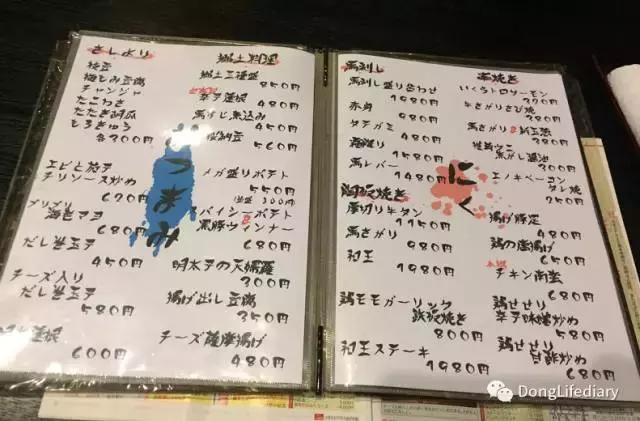 さしより
枝豆
梅とみ豆腐
チャンジャ
たこわさ
たたき胡瓜
とろきゅう
各300円
エビと茄子
チリソース炒め
620円
プリプリ
海老マヨ
680円
だし巻玉子
450円
チーズ入り
だし巻玉子
580円
蓮根
600円
おつまみ
郷土料理
郷土三種盛
850円
辛子蓮根
480円
馬すじ煮込み
480円
納豆
560円
メガ盛りポテト
550円
300円
スパイシーポテト
黒豚ウィンナー
680円
明太子の天婦羅
300円
揚げ出し豆腐
350円
チーズ薩摩揚げ
480円
馬刺し
馬刺し盛り合わせ
1980円
赤身
980円
タテガミ
480円
霜降り
1580円
馬レバー
1480円
鉄板焼き
厚切り牛タン
1980円
馬さがり
980円
和王
1980円
鶏モモガーリック
鉄板焼き
800円
和王ステーキ
1980円
にく
串焼き
いくらトロサーモン
牛さがりさび焼
300円
馬さがり
焦がし醤油
300円
エノキベーコン
タレ焼
250円
揚げ豚足
450円
鶏の唐揚げ
650円
チキン南蛮
680円
鶏せせり
辛子味噌炒め
580円
鶏せせり
甘酢炒め
680円
DongLifediary